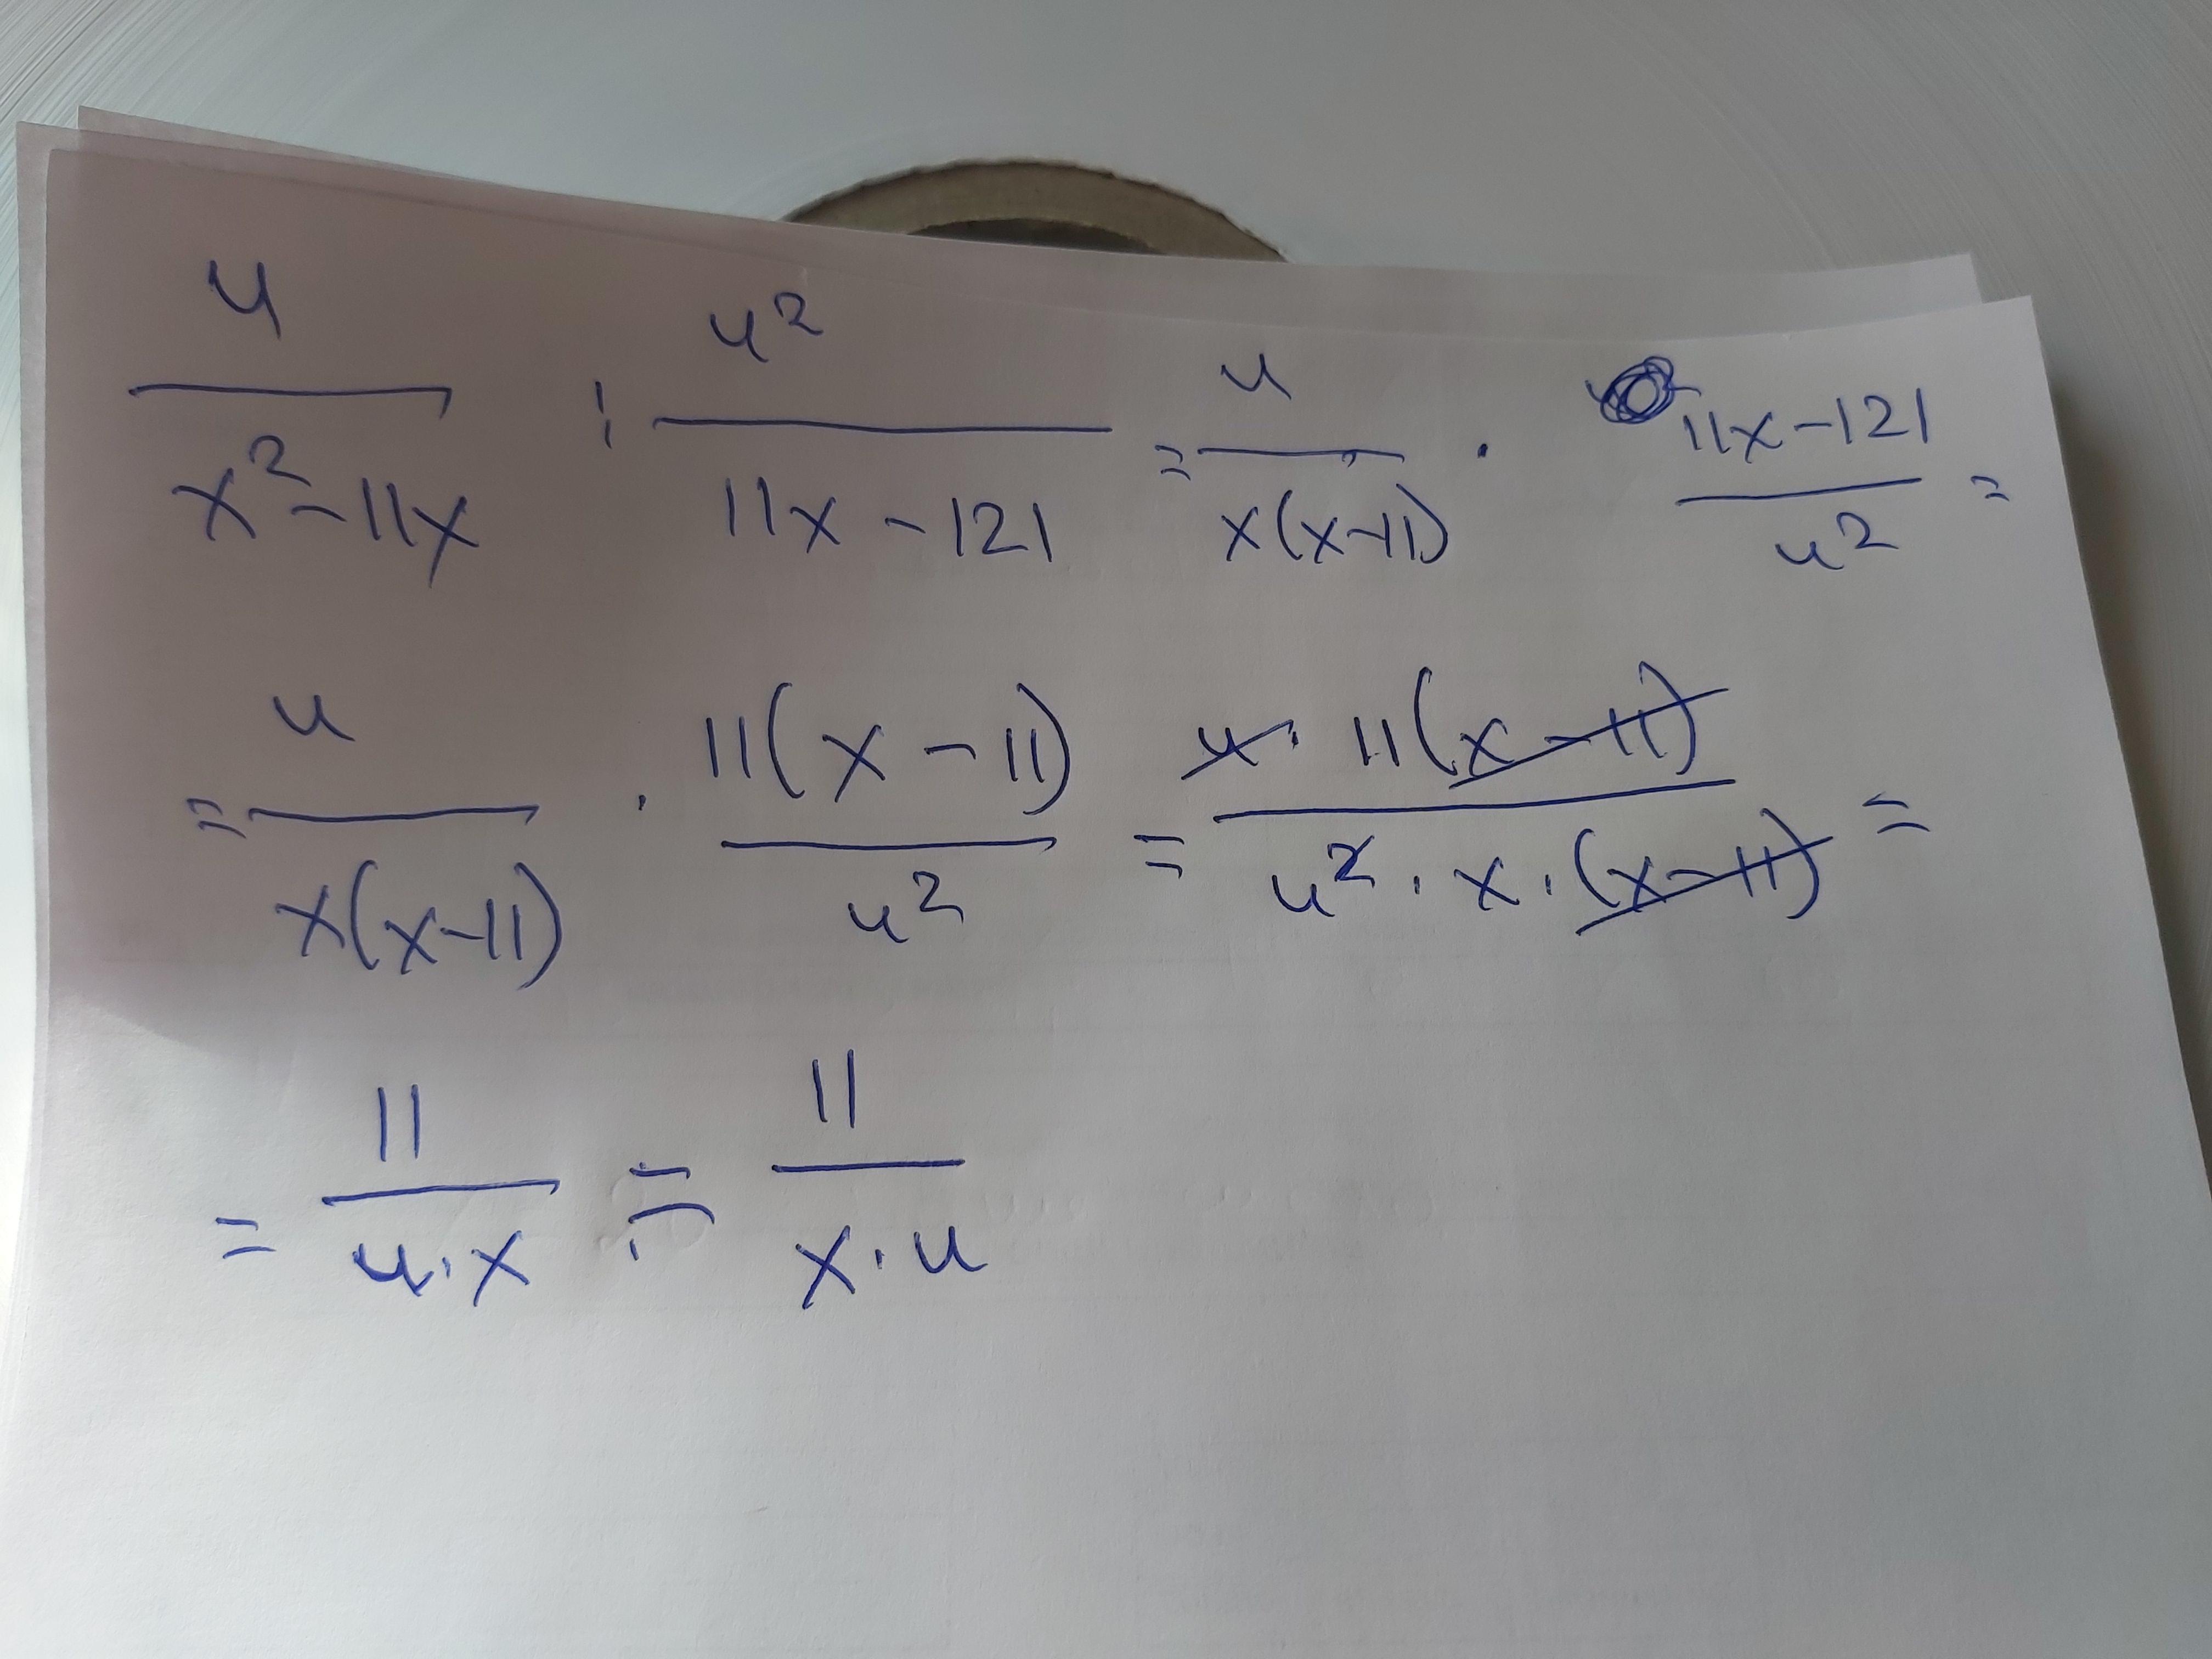 u/(x²-11x) : u²/(11x-121) = u/(x(x-11)) · (11x-121)/u² =
= u/(x(x-11)) · 11(x-11)/u² = u·11(x-11)/(u²·x·(x-11)) =
= 11/(u·x) = 11/(x·u)